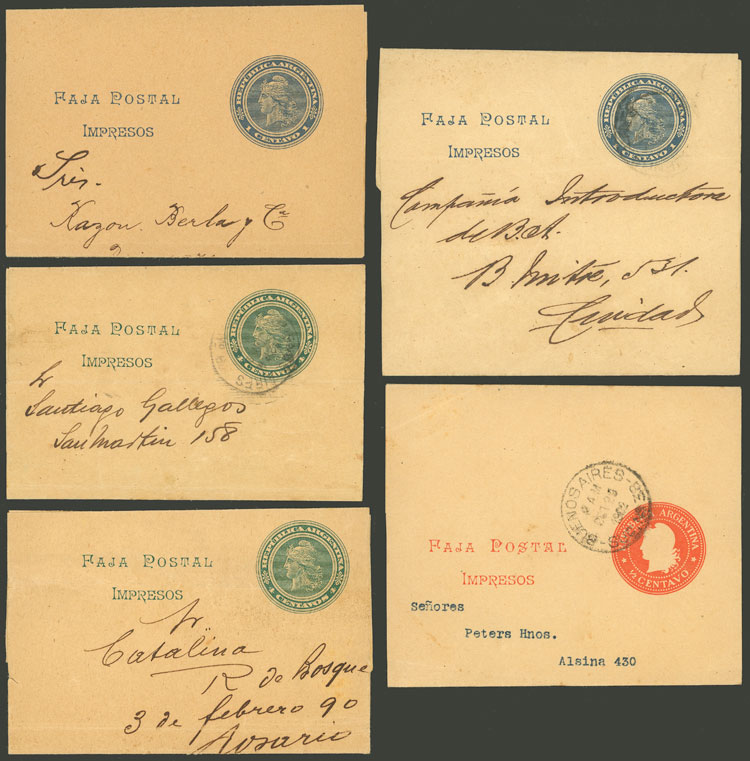 REPÚBLICA ARGENTINA
1 CENTAVO 1
FAJA POSTAL
IMPRESOS
Sres.
Kazon. Berla y Cª
REPÚBLICA ARGENTINA
1 CENTAVO 1
FAJA POSTAL
IMPRESOS
Sr
Santiago Gallegos
San Martin 158
REPÚBLICA ARGENTINA
CENTAVOS
FAJA POSTAL
IMPRESOS
Sr
Catalina
R de Bosque
3 de febrero 90
Rosario
REPÚBLICA ARGENTINA
1 CENTAVO 1
FAJA POSTAL
IMPRESOS
Compañia Introductora
de B. A.
B Mitre, 531.
Ciudad
BUENOS AIRES
ARGENTINA
½ CENTAVO
FAJA POSTAL
IMPRESOS
Señores
Peters Hnos.
Alsina 430